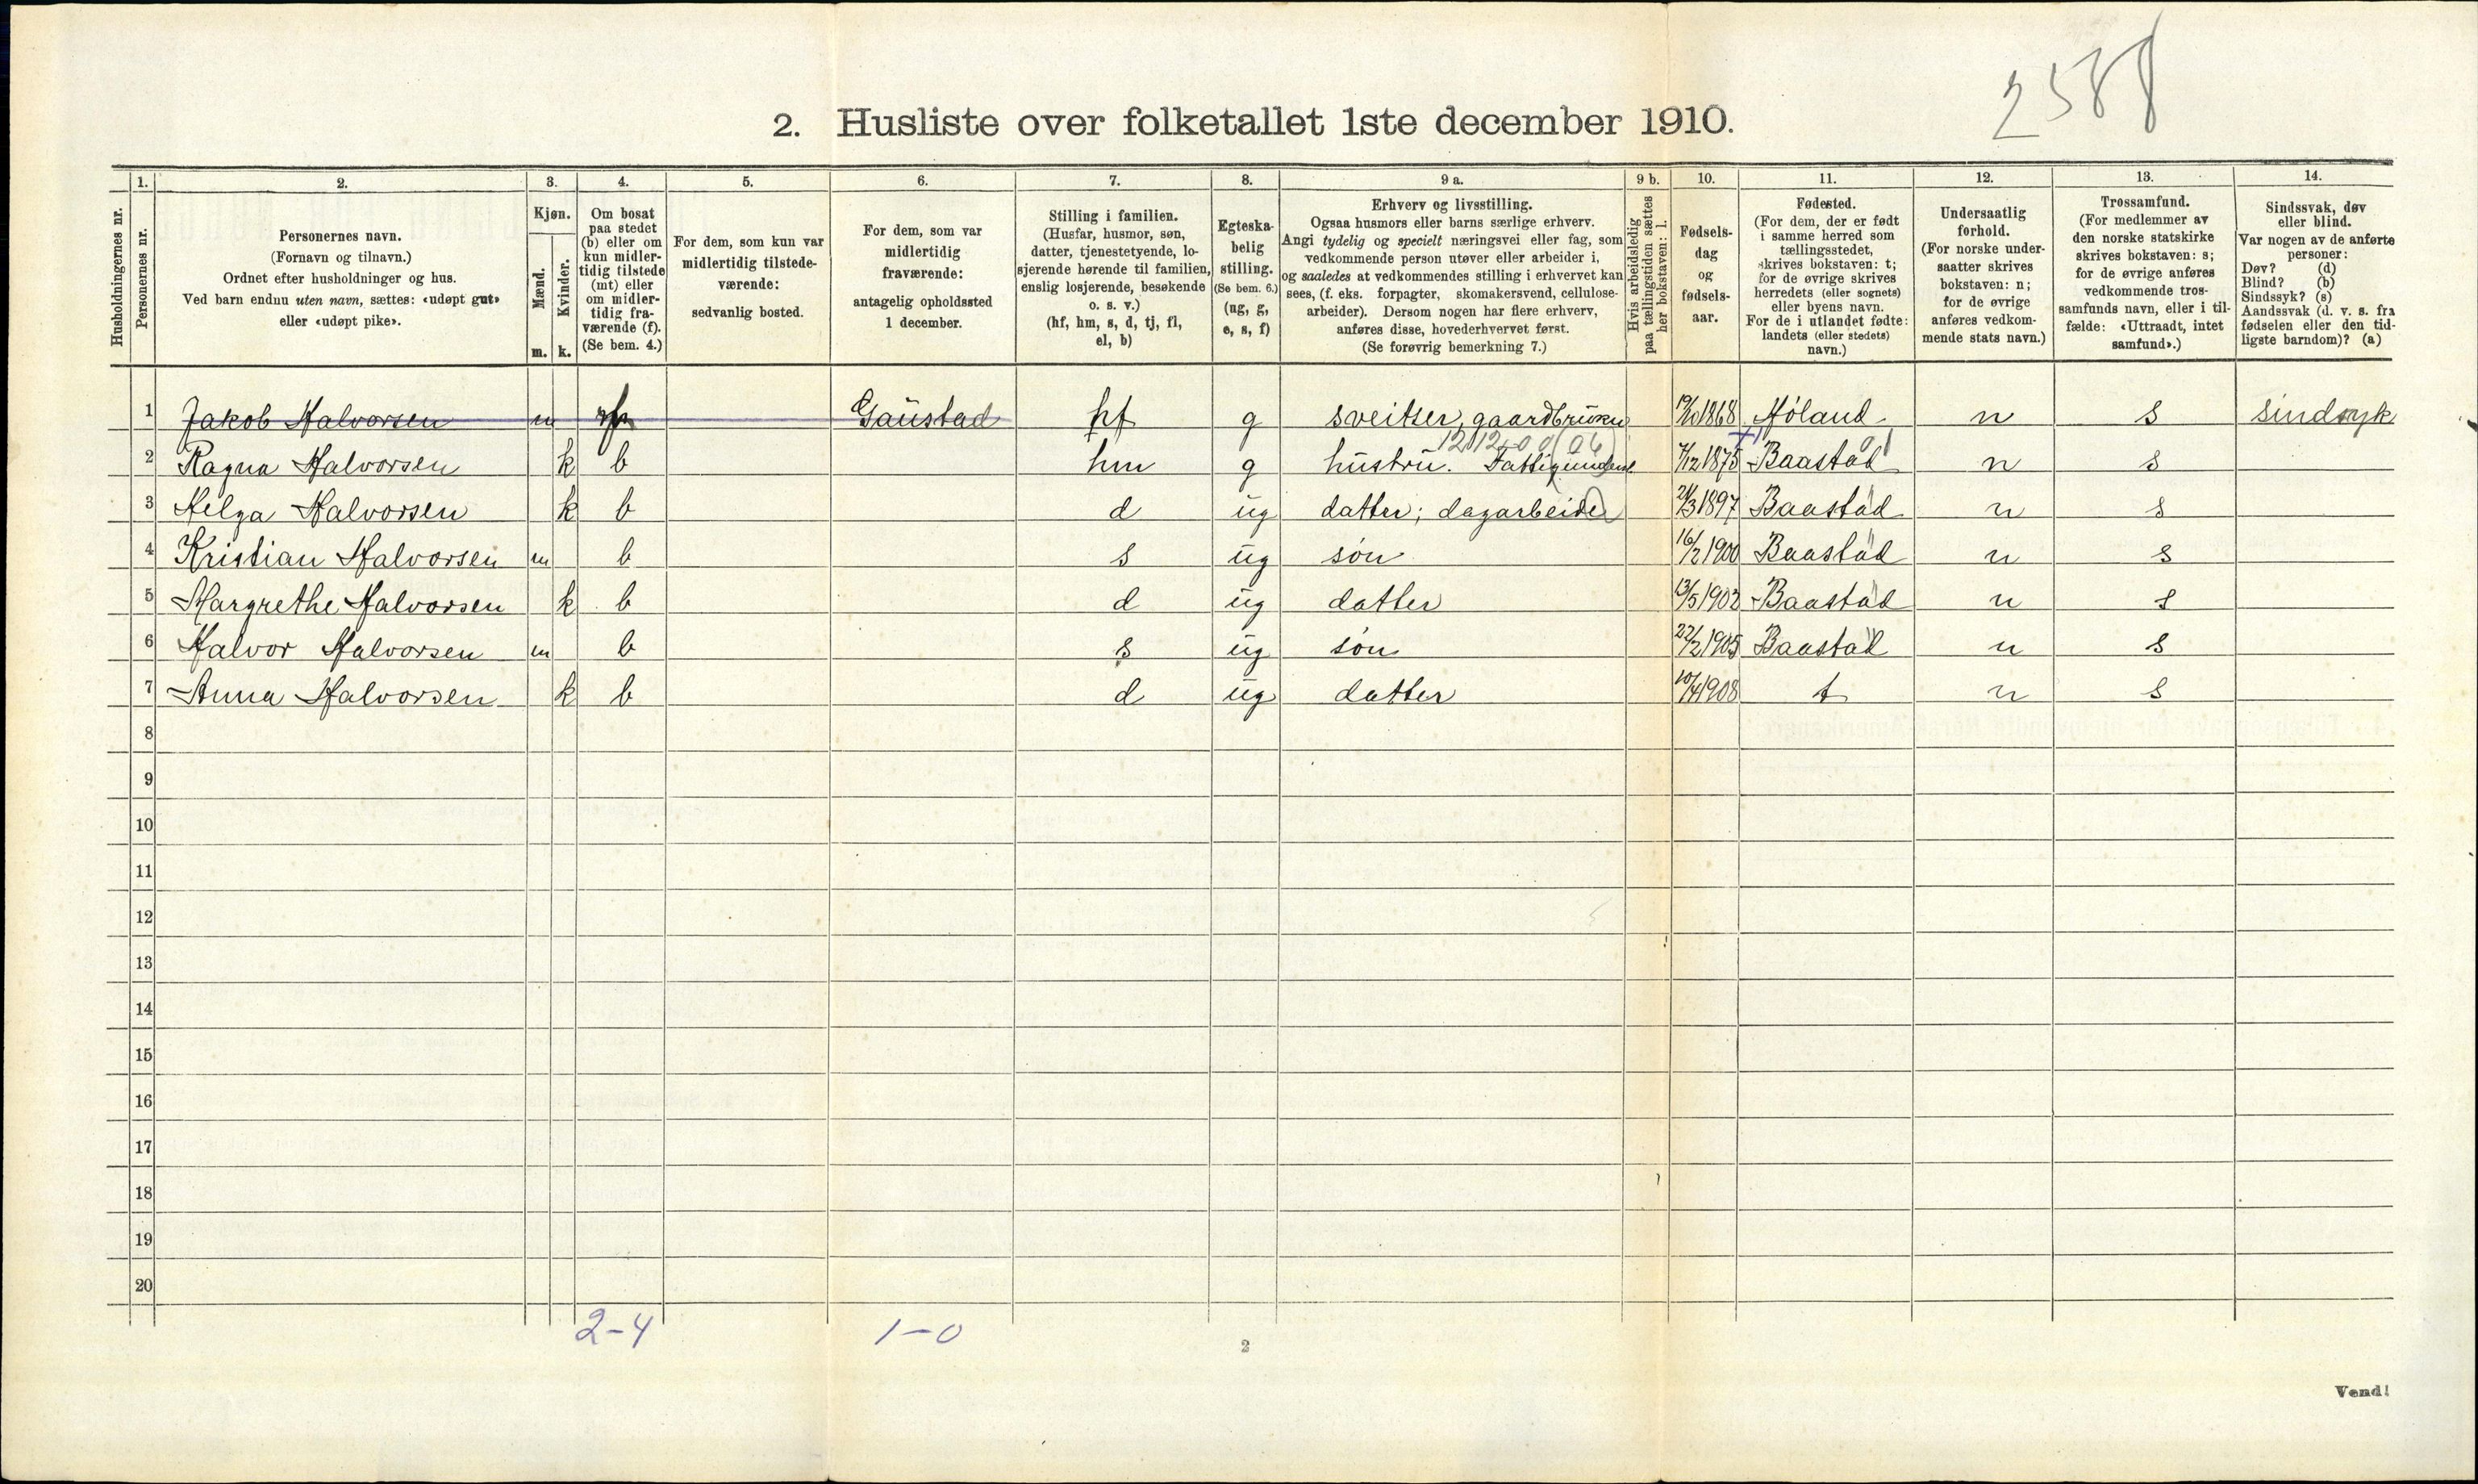 2588
2. Husliste over folketallet 1ste december 1910.
1. 2. 3. 4. 5. 6. 7. 8. 9 a. 9 b. 10. 11. 12. 13. 14.
Husholdningernes nr.
Personernes nr.
Personernes navn.
(Fornavn og tilnavn.)
Ordnet efter husholdninger og hus.
Ved barn endnu uten navn, sættes: «udøpt gut»
eller «udøpt pike».
Kjøn.
Mænd.
Kvinder.
m. k.
Om bosat
paa stedet
(b) eller om
kun midler-
tidig tilstede
(mt) eller
om midler-
tidig fra-
værende (f).
(Se bem. 4.)
For dem, som kun var
midlertidig tilstede-
værende:
sedvanlig bosted.
For dem, som var
midlertidig
fraværende:
antagelig opholdssted
1 december.
Stilling i familien.
(Husfar, husmor, søn,
datter, tjenestetyende, lo-
sjerende hørende til familien,
enslig losjerende, besøkende
o. s. v.)
(hf, hm, s, d, tj, fl,
el, b)
Egteska-
belig
stilling.
(Se bem. 6.)
(ug, g,
e, s, f)
Erhverv og livsstilling.
Ogsaa husmors eller barns særlige erhverv.
Angi tydelig og specielt næringsvei eller fag, som
vedkommende person utøver eller arbeider i,
og saaledes at vedkommendes stilling i erhvervet kan
sees, (f. eks. forpagter, skomakersvend, cellulose-
arbeider). Dersom nogen har flere erhverv,
anføres disse, hovederhvervet først.
(Se forøvrig bemerkning 7.)
Hvis arbeidsledig
paa tællingstiden sættes
her bokstaven: l.
Fødsels-
dag
og
fødsels-
aar.
Fødested.
(For dem, der er født
i samme herred som
tællingsstedet,
skrives bokstaven: t;
for de øvrige skrives
herredets (eller sognets)
eller byens navn.
For de i utlandet fødte:
landets (eller stedets)
navn.)
Undersaatlig
forhold.
(For norske under-
saatter skrives
bokstaven: n;
for de øvrige
anføres vedkom-
mende stats navn.)
Trossamfund.
(For medlemmer av
den norske statskirke
skrives bokstaven: s;
for de øvrige anføres
vedkommende tros-
samfunds navn, eller i til-
fælde: «Uttraadt, intet
samfund».)
Sindssvak, døv
eller blind.
Var nogen av de anførte
personer:
Døv? (d)
Blind? (b)
Sindssyk? (s)
Aandssvak (d. v. s. fra
fødselen eller den tid-
ligste barndom)? (a)
1 Jakob Halvorsen m Gaustad hf g sveitser, gaardbruker 1868 Høland n s sindsyk
2 Ragna Halvorsen k b hm g hustru. Fattigunderst 7/12 1875 Baastad n s
3 Helga Halvorsen k b d ug datter; dagarbeide 21/3 1897 Baastad n s
4 Kristian Halvorsen m b s ug søn 16/2 1900 Baastad n s
5 Margrethe Halvorsen k b d ug datter 13/5 1902 Baastad n s
6 Halvor Halvorsen m b s ug søn 22/2 1905 Baastad n s
7 Anna Halvorsen k b d ug datter 10/4 1908 t n s
8
9
10
11
12
13
14
15
16
17
18
19
20
2-4 1-0
2
Vend!